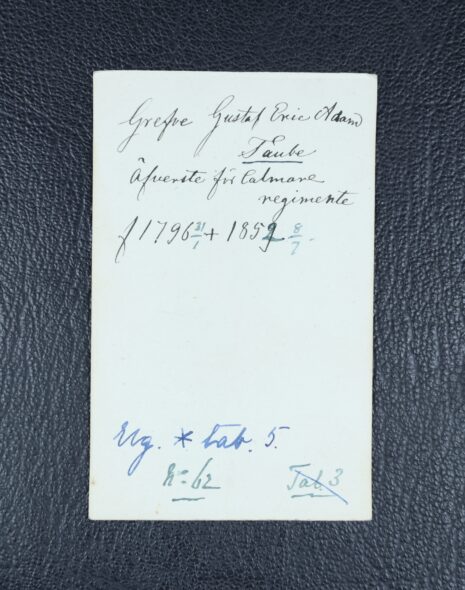 Grefve Gustaf Eric Adam
Taube
Öfverste för Calmare
regimente
f 1796 21/1 + 1852 8/7.
Elg. * tab. 5.
N= 62
Tab. 3